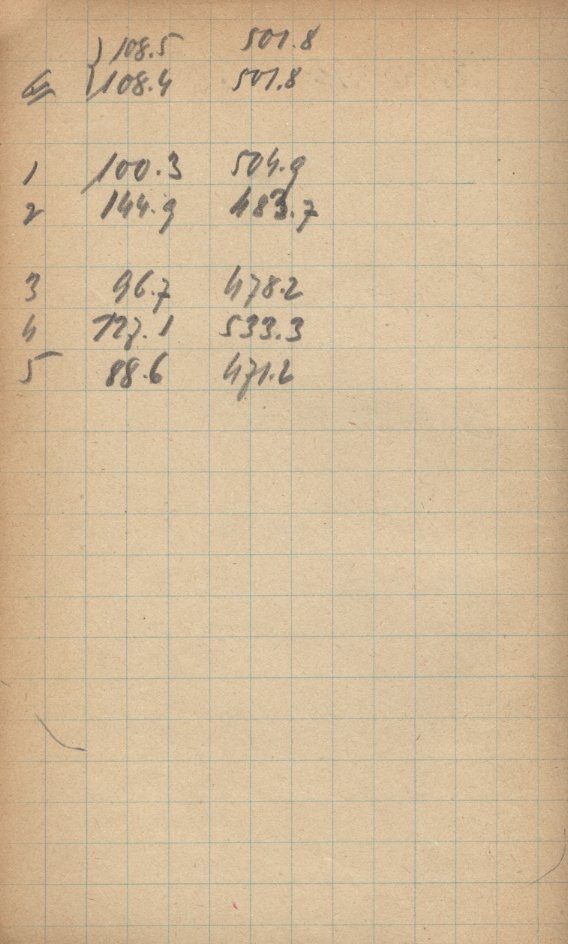 108.5 501.8
108.4 501.8
1 100.3 504.9
2 144.9 483.7
3 96.7 478.2
4 127.1 533.3
5 88.6 471.2